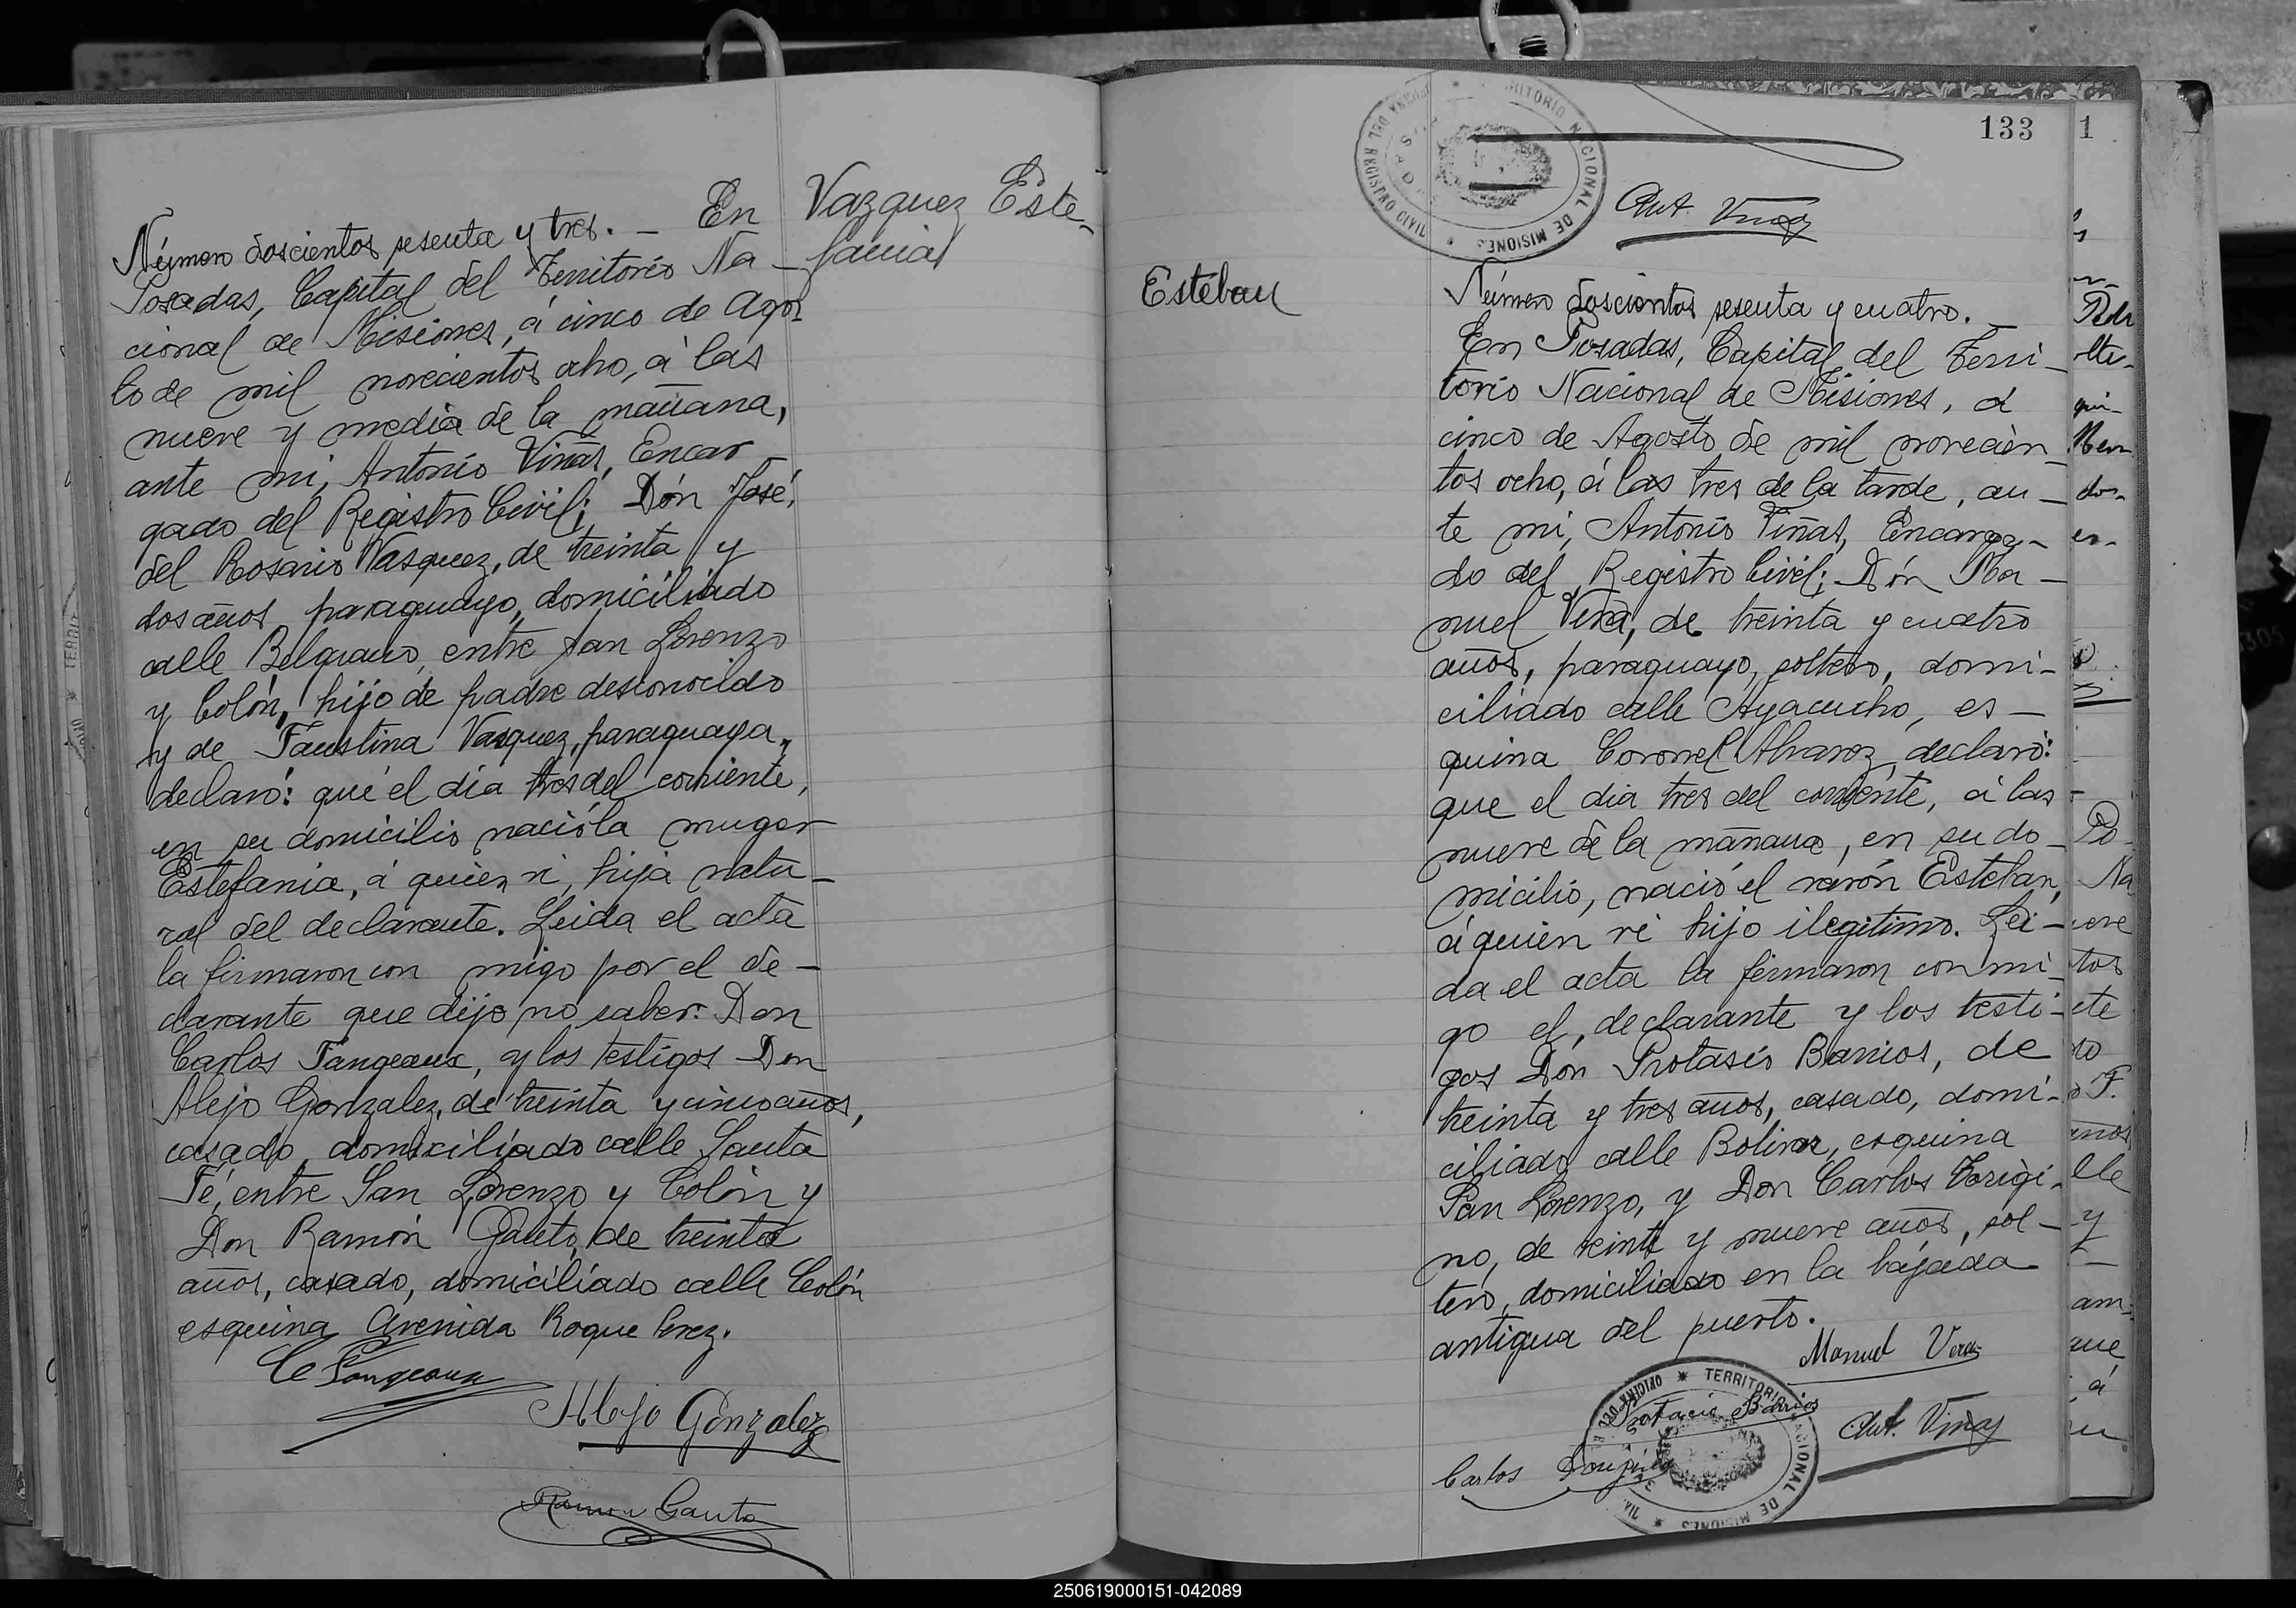 Vazquez Este-
fania
Número doscientos sesenta y tres. — En
Posadas, Capital del Territorio Na-
cional de Misiones, á cinco de Agos-
to de mil novecientos ocho, á las
nueve y media de la mañana,
ante mi, Antonio Viñas, Encar-
gado del Registro Civil; Dón José
del Rosario Vasquez, de treinta y
dos años, paraguayo, domiciliado
calle Belgrano, entre San Lorenzo
y Colón, hijo de padre desconocido
y de Faustina Vasquez, paraguaya,
declaró: que el día tres del corriente,
en su domicilio nació la muger
Estefania, á quien ví, hija natu-
ral del declarante. Leida el acta
la firmaron con migo por el de-
clarante que dijo no saber: Don
Carlos Tangeaux, y los testigos Don
Alejo Gonzalez, de treinta y cinco años,
casado, domiciliado calle Santa
Fé, entre San Lorenzo y Colón y
Don Ramón Gauto, de treinta
años, casado, domiciliado calle Colón
esquina Avenida Roque Perez.
C Tangeaux
Alejo Gonzalez
Ramon Gauto
133
TERRITORIO NACIONAL DE MISIONES
OFICINA DEL REGISTRO CIVIL
POSADAS
Ant. Viñas
Esteban
Número doscientos sesenta y cuatro.
En Posadas, Capital del Terri-
torio Nacional de Misiones, á
cinco de Agosto de mil novecien-
tos ocho, á las tres de la tarde, an-
te mi, Antonio Viñas, Encarga-
do del Registro Civil; Dón Ma-
nuel Vera, de treinta y cuatro
años, paraguayo, soltero, domi-
ciliado calle Ayacucho, es-
quina Coronel Alvarez, declaró:
que el dia tres del corriente, á las
nueve de la mañana, en su do-
micilio, nació el varón Esteban,
á quien ví hijo ilegitimo. Lei-
da el acta la firmaron con mi-
go el declarante y los testi-
gos Don Protasio Barrios, de
treinta y tres años, casado, domi-
ciliado calle Bolivar, esquina
San Lorenzo, y Don Carlos
no, de veinte y nueve años, sol-
tero, domiciliado en la bajada
antigua del puerto.
Manuel Vera
Protacio Barrios
Ant. Viñas
Carlos
TERRITORIO NACIONAL DE MISIONES
250619000151-042089